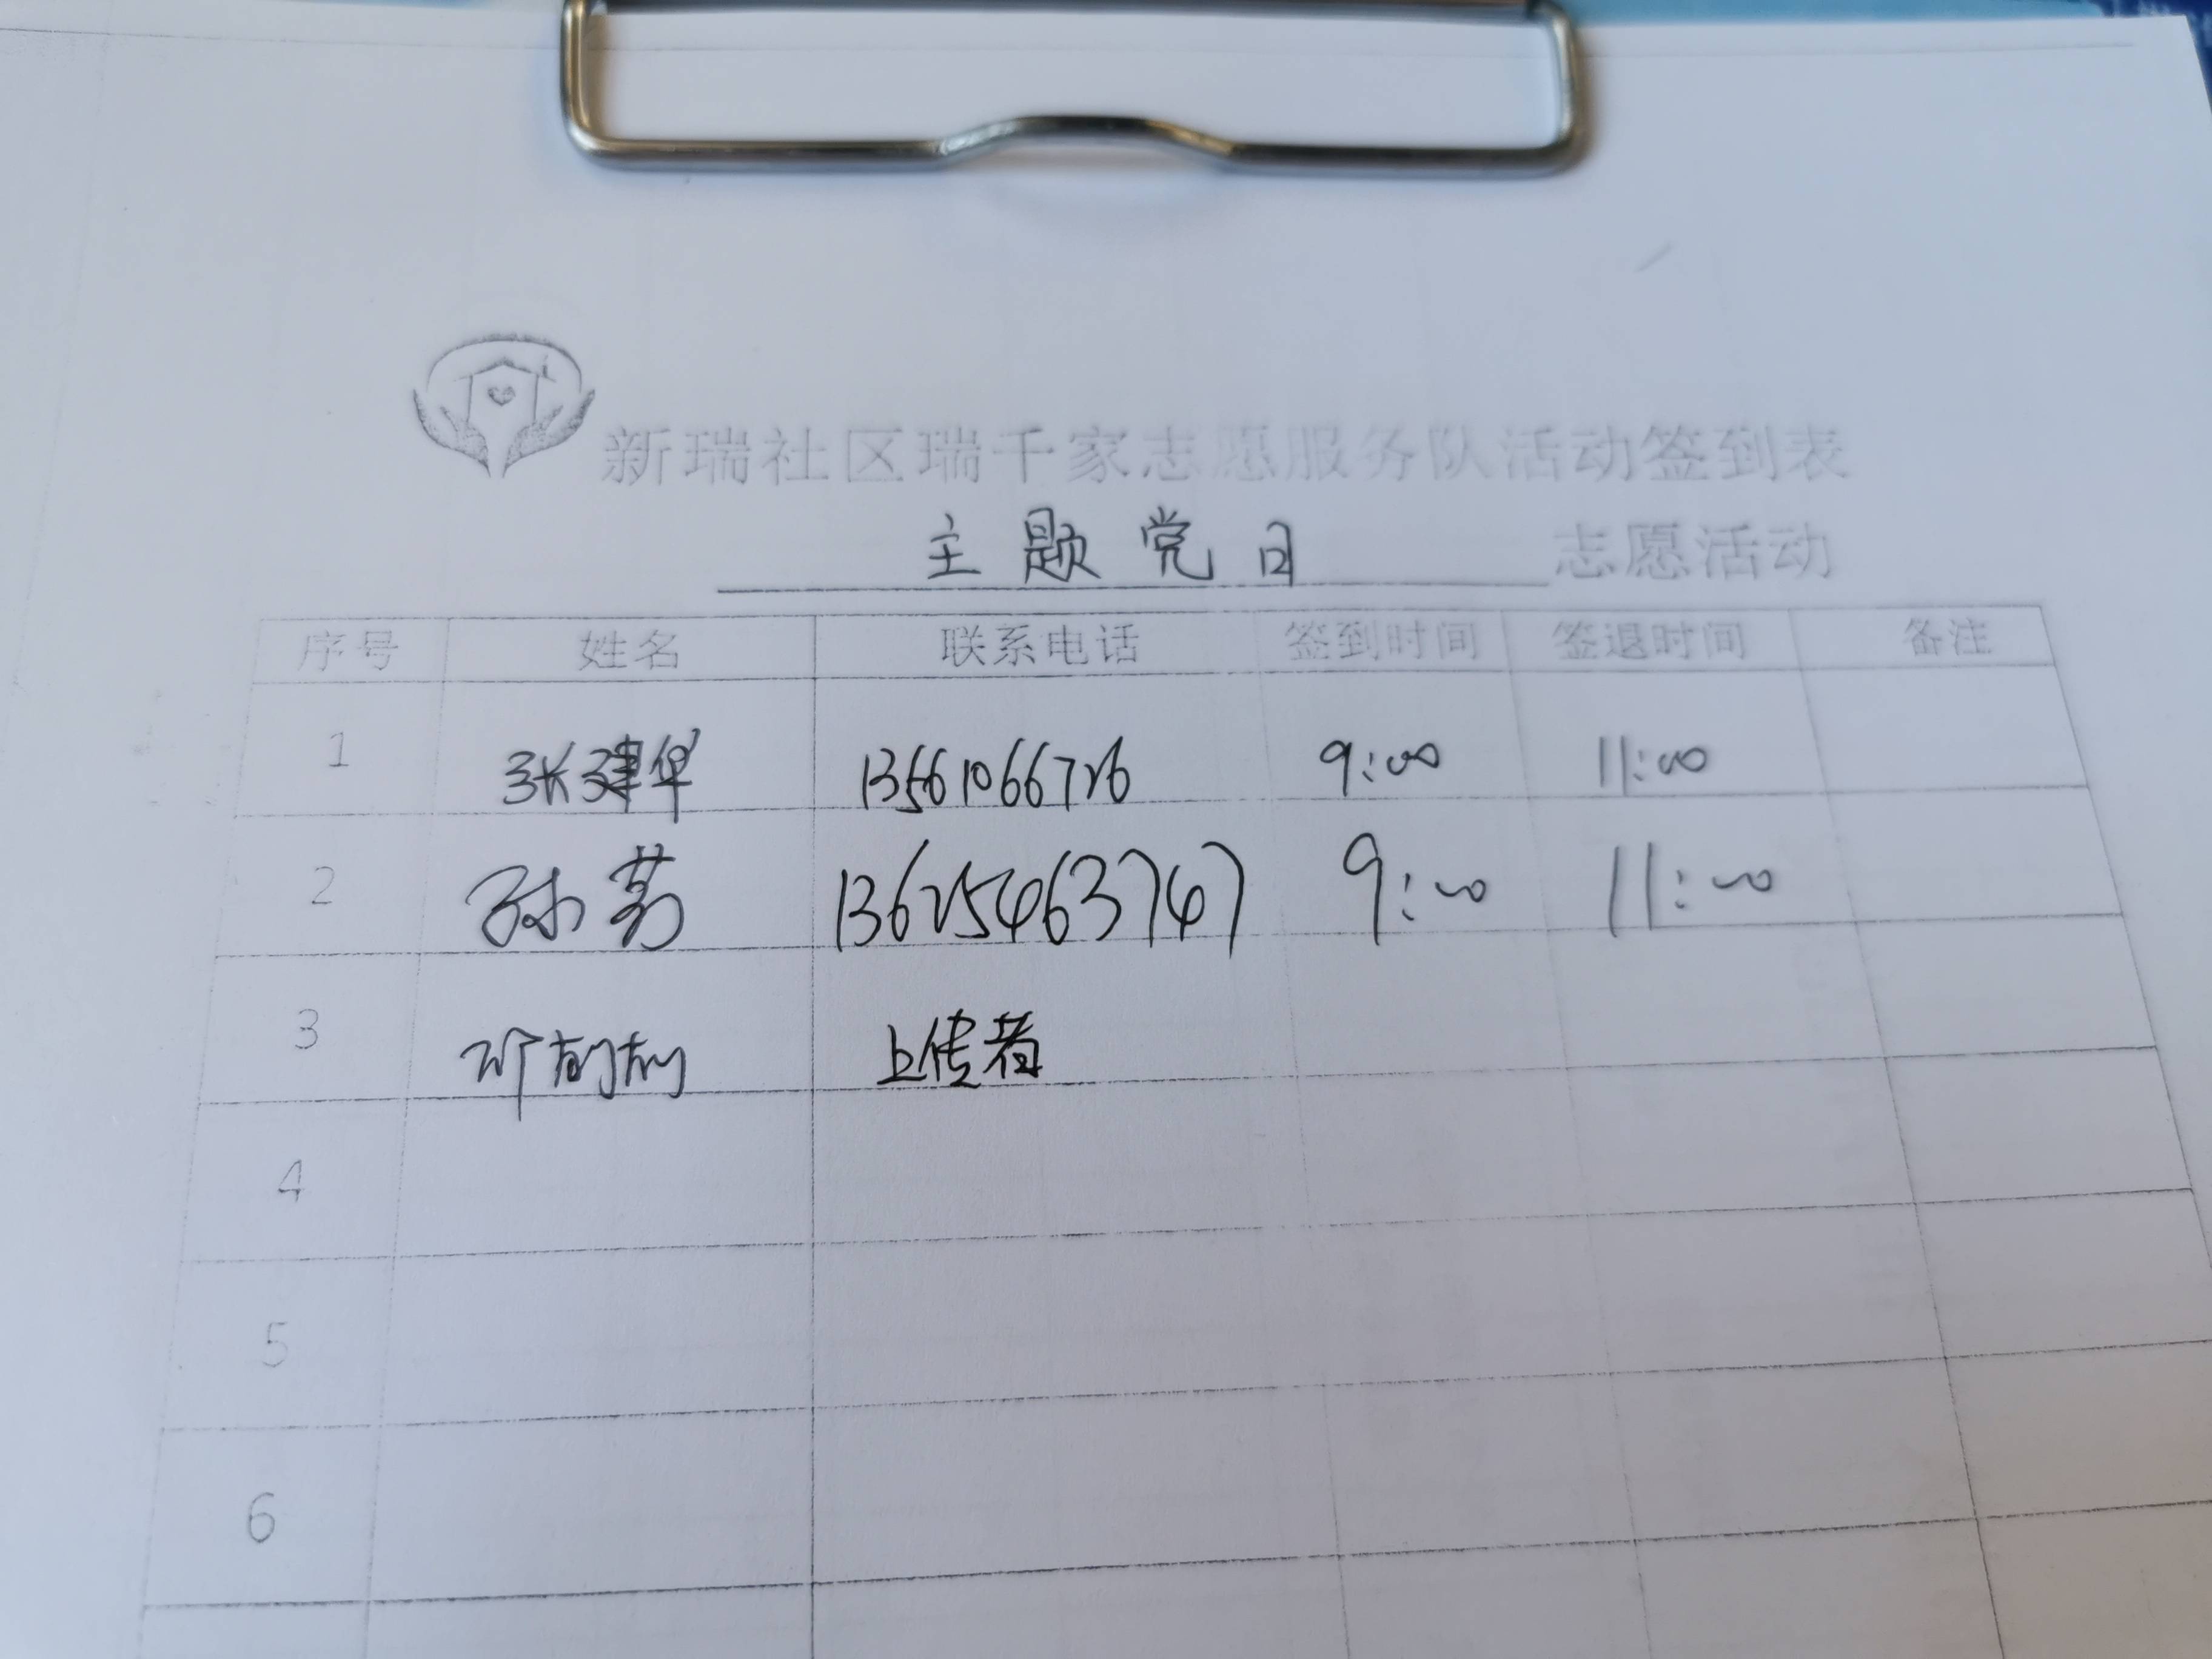 新瑞社区瑞千家志愿服务队活动签到表
主题党日 志愿活动
序号 姓名 联系电话 签到时间 签退时间 备注
1 张建华 9:00 11:00
2 孙 13625463747 9:00 11:00
3 上传者
4
5
6